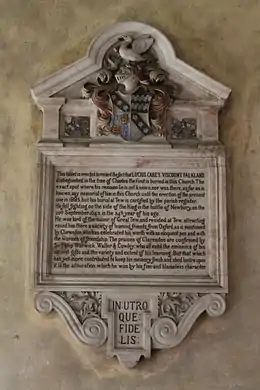 This tablet is erected to record the fact that LUCIUS CAREY VISCOUNT FALKLAND
distinguished in the time of Charles the first is buried in this Church. The
exact spot where his remains lie is not known, nor was there, so far as is
known, any memorial of him in this Church until the erection of the present
one in 1885, but his burial at Tew is certified by the parish register.
He fell fighting on the side of the King in the battle of Newbury, on the
20th September 1643, in the 34th year of his age.
He was lord of the manor of Great Tew, and resided at Tew, attracting
round him there a society of learned friends from Oxford, as is mentioned
by Clarendon, who has celebrated his worth with an eloquent pen and with
the warmth of friendship. The praises of Clarendon are confirmed by
Sir Philip Warwick, Waller & Cowley, who attest the eminence of his
natural gifts and the variety and extent of his learning. But that which
has yet more contributed to keep his memory fresh and shed lustre upon
it is the admiration which he won by his free and blameless character.
IN·UTRO
QUE·FIDE
LIS·